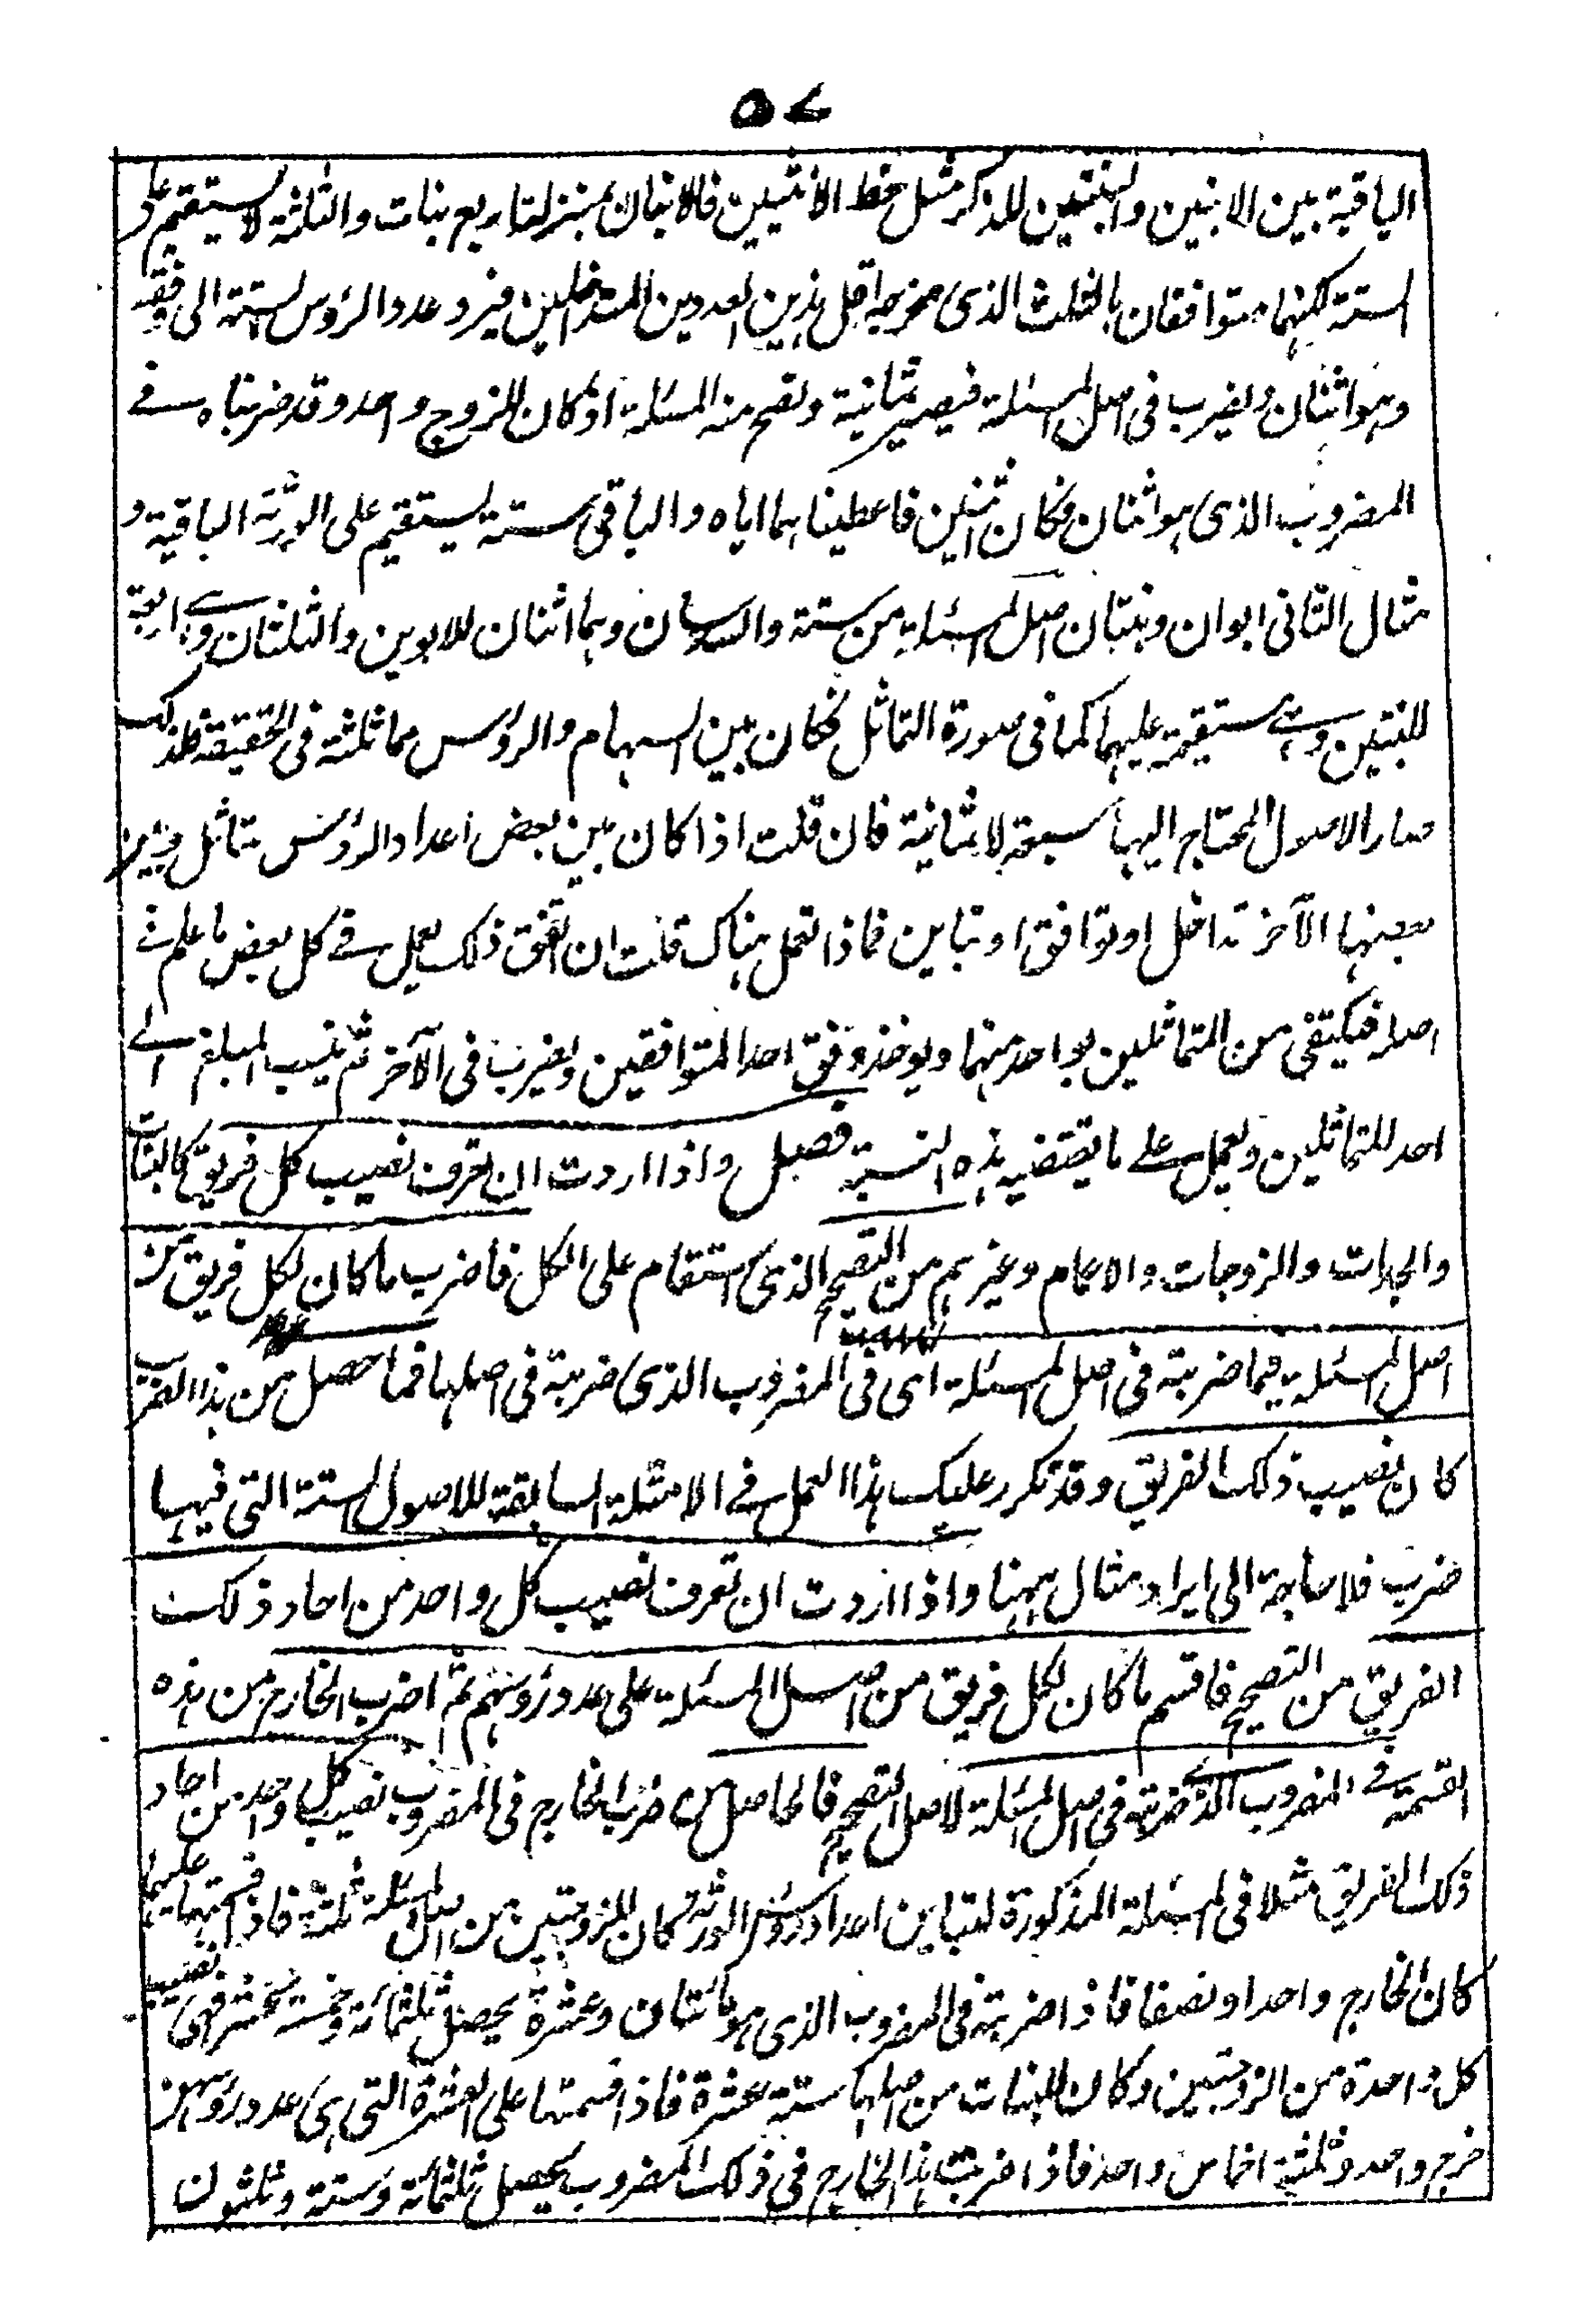 ٥٧
الباقية بين الابنين والبنتين للذكر مثل حظ الانثيين فالابنان بمنزلة اربع بنات والثلثة لا يستقيم على
الستة لكنهما متوافقان بالثلث الذى مخرجه اقل هذين العددين المتداخلين فيرد عدد الرؤس الستة الى وفقه
وهو اثنان ويضرب فى اصل المسئلة فيصير ثمانية وتصح منه المسئلة اذ كان للزوج واحد وقد ضربناه فے
المضروب الذى هو اثنان فكان اثنين فاعطيناهما اياه والباقى ستة يستقيم على الورثة الباقية و
مثال الثانى ابوان وبنتان اصل المسئلة من ستة والسدسان وهما اثنان للابوين والثلثان وهے اربعة
للبنتين وهے مستقيمة عليهما كما فى صورة التماثل فكان بين السهام والرؤس مماثلة فى الحقيقة فلذلك
صار الاصول المحتاج اليها سبعة لا ثمانية فان قلت اذا كان بين بعض اعداد الرؤس تماثل وبين
بعضها الآخر تداخل او توافق او تباين فماذا تعمل هناك قلت ان اتفق ذلك يعمل فے كل بعض ما علم فے
اصله فيكتفى من المتماثلين بواحد منهما ويوخذ وفق احد المتوافقين ويضرب فى الآخر ثم ينسب المبلغ الے
احد المتماثلين ويعمل على ما يقتضيه هذه النسبة فصل واذا اردت ان تعرف نصيب كل فريق كالبنات
والجدات والزوجات والاعمام وغيرهم من التصحيح الذى استقام على الكل فاضرب ما كان لكل فريق من
اصل المسئلة فيما ضربته فى اصل المسئلة اى فى المضروب الذى ضربته فى اصلها فما حصل من هذا الضرب
كان نصيب ذلك الفريق وقد تكرر عليك هذا العمل فے الامثلة السابقة للاصول الستة التى فيها
ضرب فلا حاجة الى ايراد مثال ههنا واذا اردت ان تعرف نصيب كل واحد من احاد ذلك
الفريق من التصحيح فاقسم ما كان لكل فريق من اصل المسئلة على عدد رؤسهم ثم اضرب الخارج من هذه
القسمة فے المضروب الذے ضربته فى اصل المسئلة لاصل التصحيح فالحاصل من ضرب الخارج فى المضروب نصيب كل واحد من احاد
ذلك الفريق مثلا فى المسئلة المذكورة لتباين اعداد رؤس الورثة كان للزوجتين من اصل المسئلة ثلثة فاذا قسمتها عليهما
كان الخارج واحدا ونصفا فاذا ضربته فى المضروب الذى هو مائتان وعشرة يحصل ثلثمائة وخمسة عشر فهى نصيب
كل واحدة من الزوجتين وكان للبنات من اصلها ستة عشرة فاذا قسمتها على العشرة التى هى عدد رؤسهن
خرج واحد وثلثة اخماس واحد فاذا ضربت هذا الخارج فى ذلك المضروب يحصل ثلثمائة وستة وثلثون